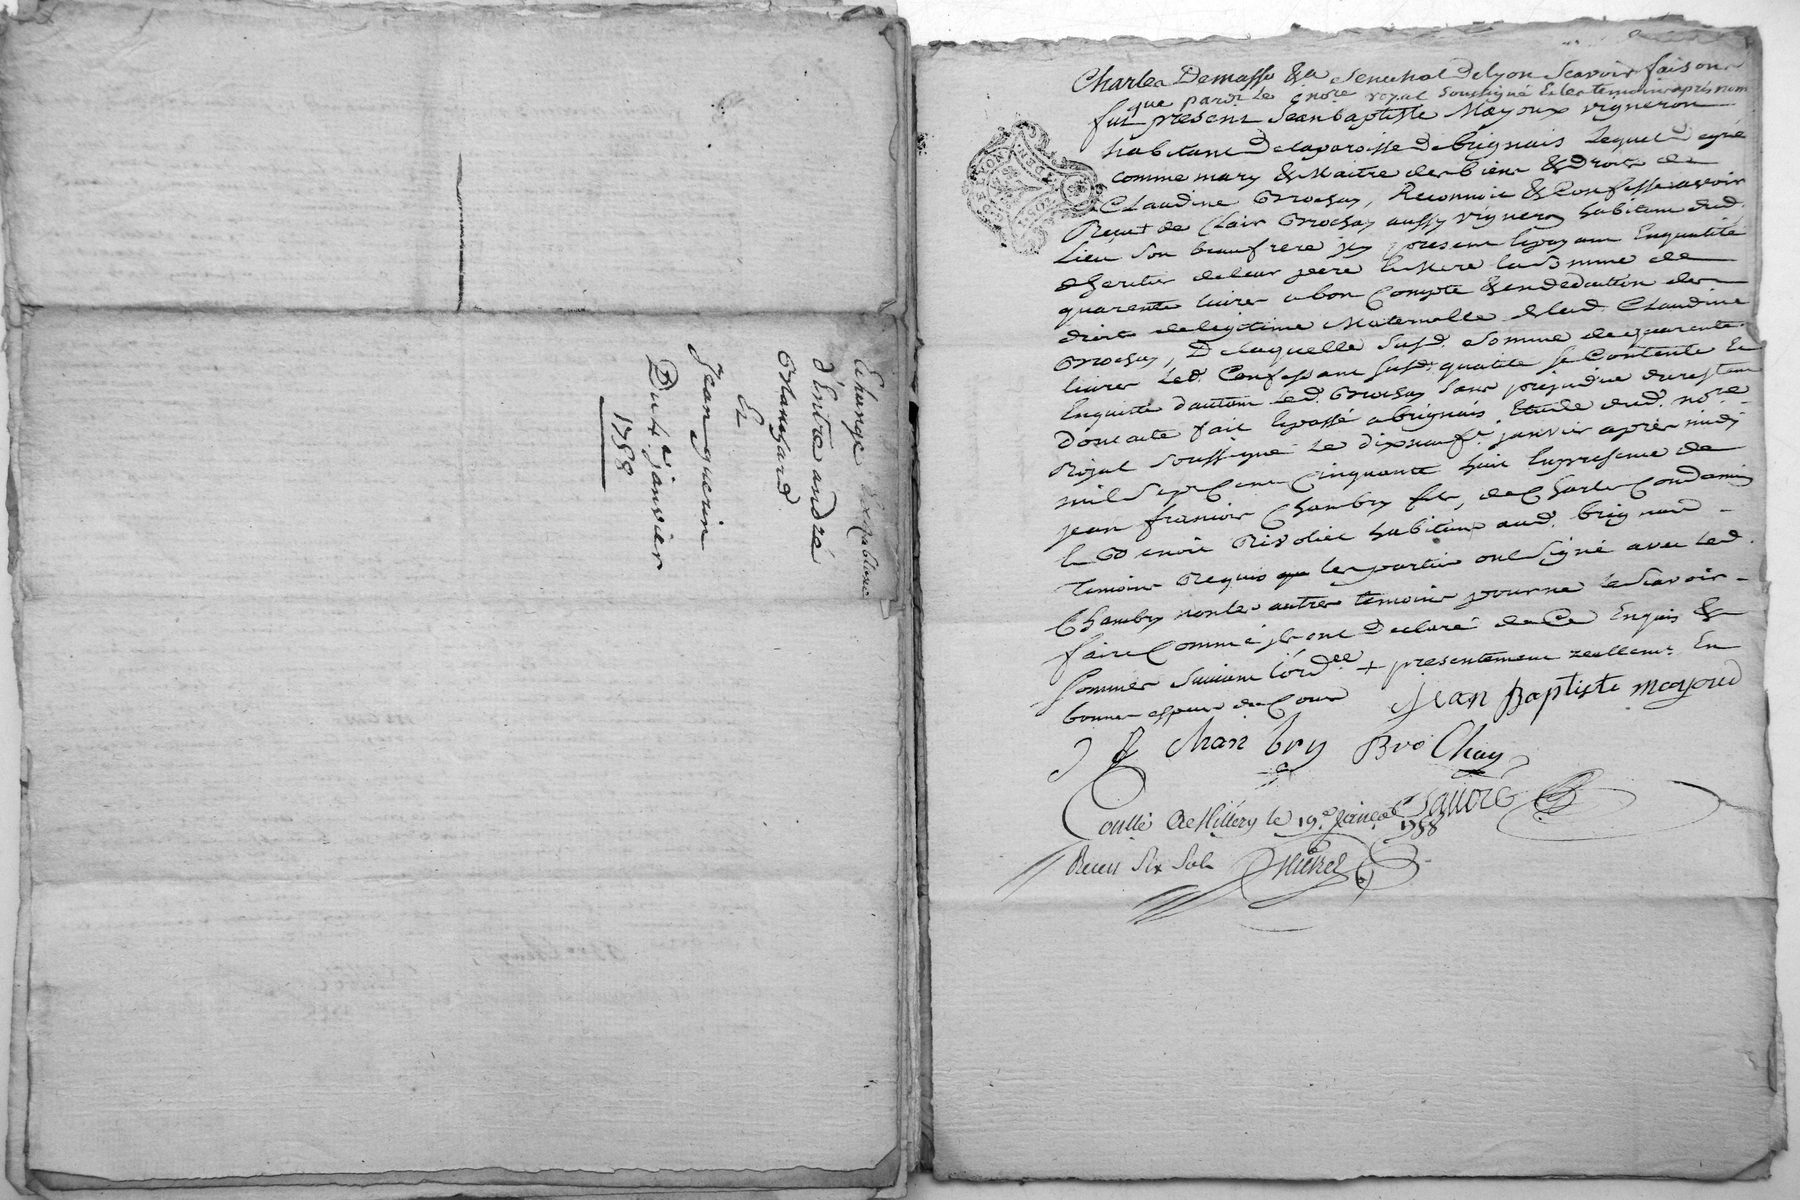 Echange
d'Entre andré
Et
Jean guerin
Du 4e janvier
1758
Charles Demasso &a Senechal De lyon Scavoir faisons
que pardt le nore royal soussigné Et les temoins après nom
fut present Jean baptiste Mayoux vigneron
habitant De la paroisse de brignais Lequel agré
comme mary & Maitre des biens & droits de
Claudine Brochay, Reconnoit & Confesse avoir
Reçut de Clair Brochay aussy vigneron habitant dud.
Lieu son beaufrere jcy present & payant En qualité
d'heritier de leur pere & Mere la somme de
quarente livres a bon Compte & en deduction des
droits de legitime Maternelle de lad. Claudine
Brochay, De laquelle susd. somme de quarente
livres Led. Confessant susd. qualité se Contente Et
Enquitte d'autant led. Brochay sans prejudice du restant
Dont acte fait & passé a brignais Etude dud. nore
Royal soussigné Le dixneufe janvier après midy
mil sept Cent Cinquante huit En presence de
jean francois Chambry fils, de Charle Condamin
& Benoit Rivoliee habitant aud. brignais
Temoins Requis que les parties ont signé avec led.
Chambry non les autres temoins pour ne le scavoir
faire Comme jls ont Declaré de Ce Enquis &
sommés suivant l'ordce + presentement reellemt. En
bonnes espece de Cour
Jean Baptiste mayoud
J f Chanbry Brochay
Conllé A Millery le 19e Janer 1758
Recu Six Sols